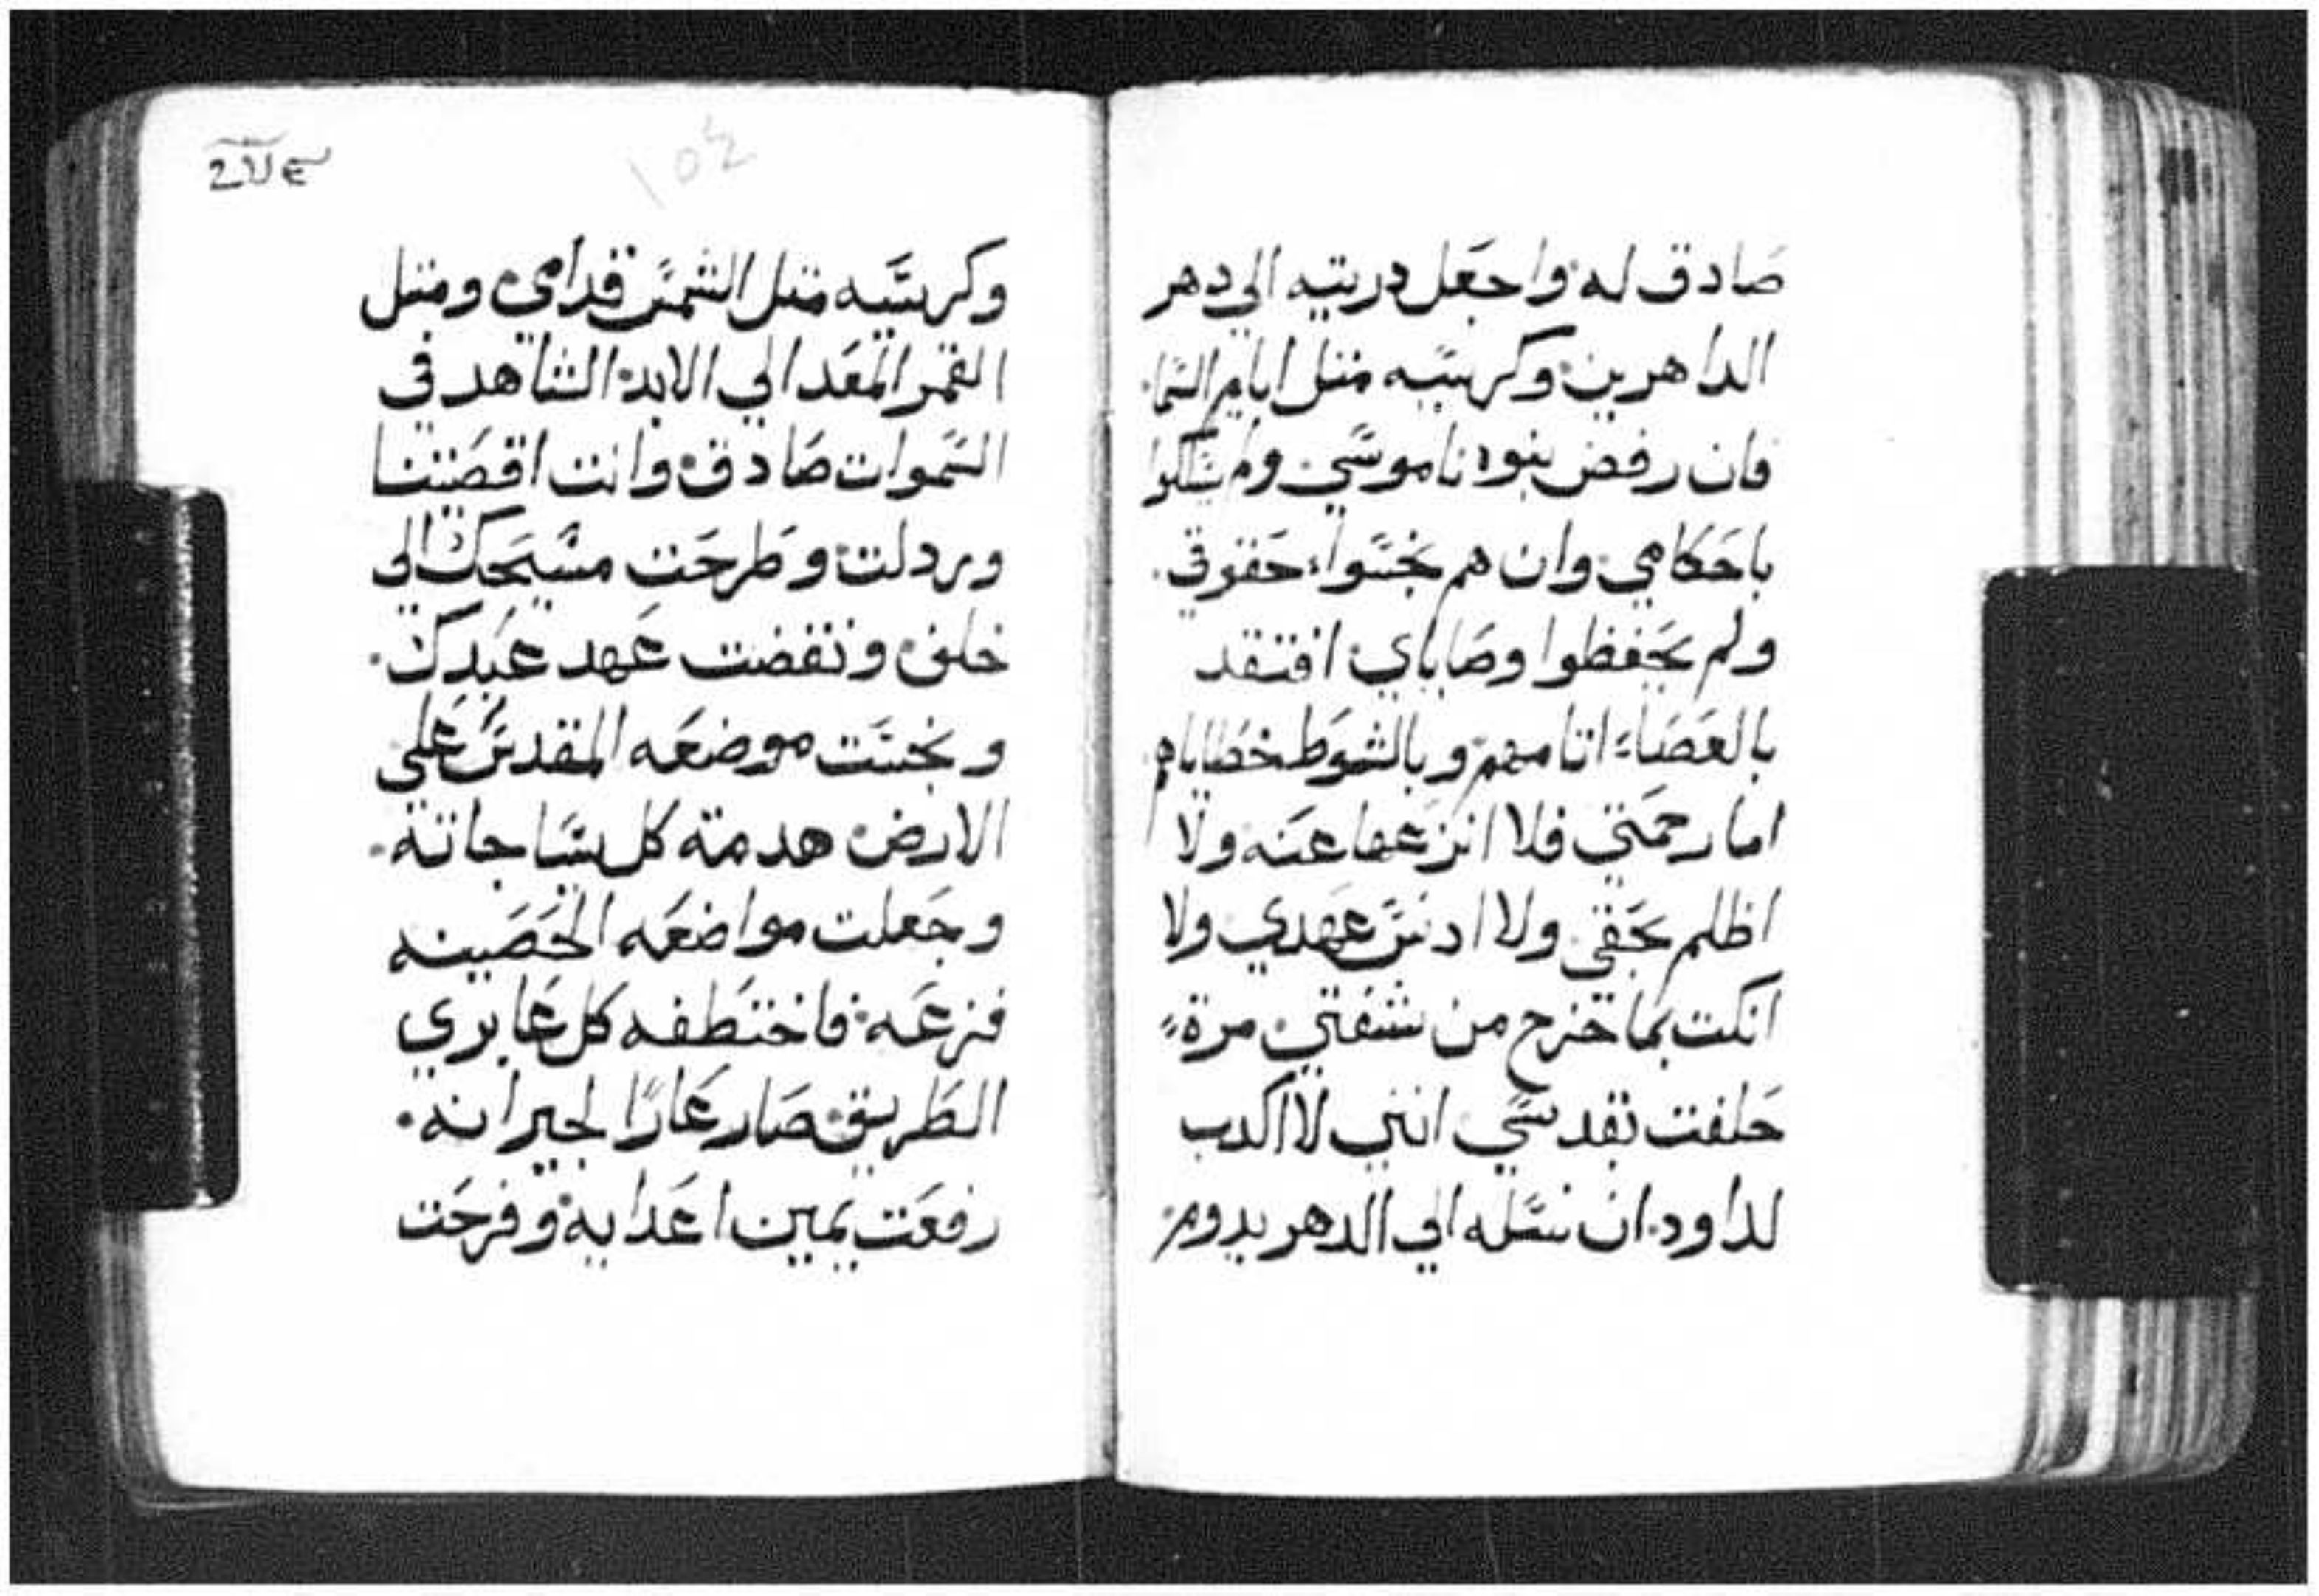 صادق له واجعل دريته الي دهر
الداهرين وكرسيه مثل ايام السما
فان رفض بنوه ناموسي ولم يسلكوا
باحكامي وان هم نجسوا حقوقي
ولم يحفظوا وصاياي افتقد
بالعصاء اتامهم وبالشوط خطاياهم
اما رحمتي فلا انزعها عنه ولا
اظلم بحقي ولا ادنس عهدي ولا
انكت بما تخرج من شفتي مرة
حلفت بقدسي انني لا اكدب
لداود ان نسله الي الدهر يدوم
وكرسيه مثل الشمس قدامي ومثل
القمر المعد الي الابد الشاهد في
السموات صادق وانت اقصيتنا
وردلت وطرحت مسيحك الي
خلف ونقضت عهد عبدك
ونجست موضعه المقدس علي
الارض هدمة كل سياجاته
وجعلت مواضعه الحصينه
فزعه فاختطفه كل عابري
الطريق صار عارًا لجيرانه
رفعت يمين اعدايه وفرحت